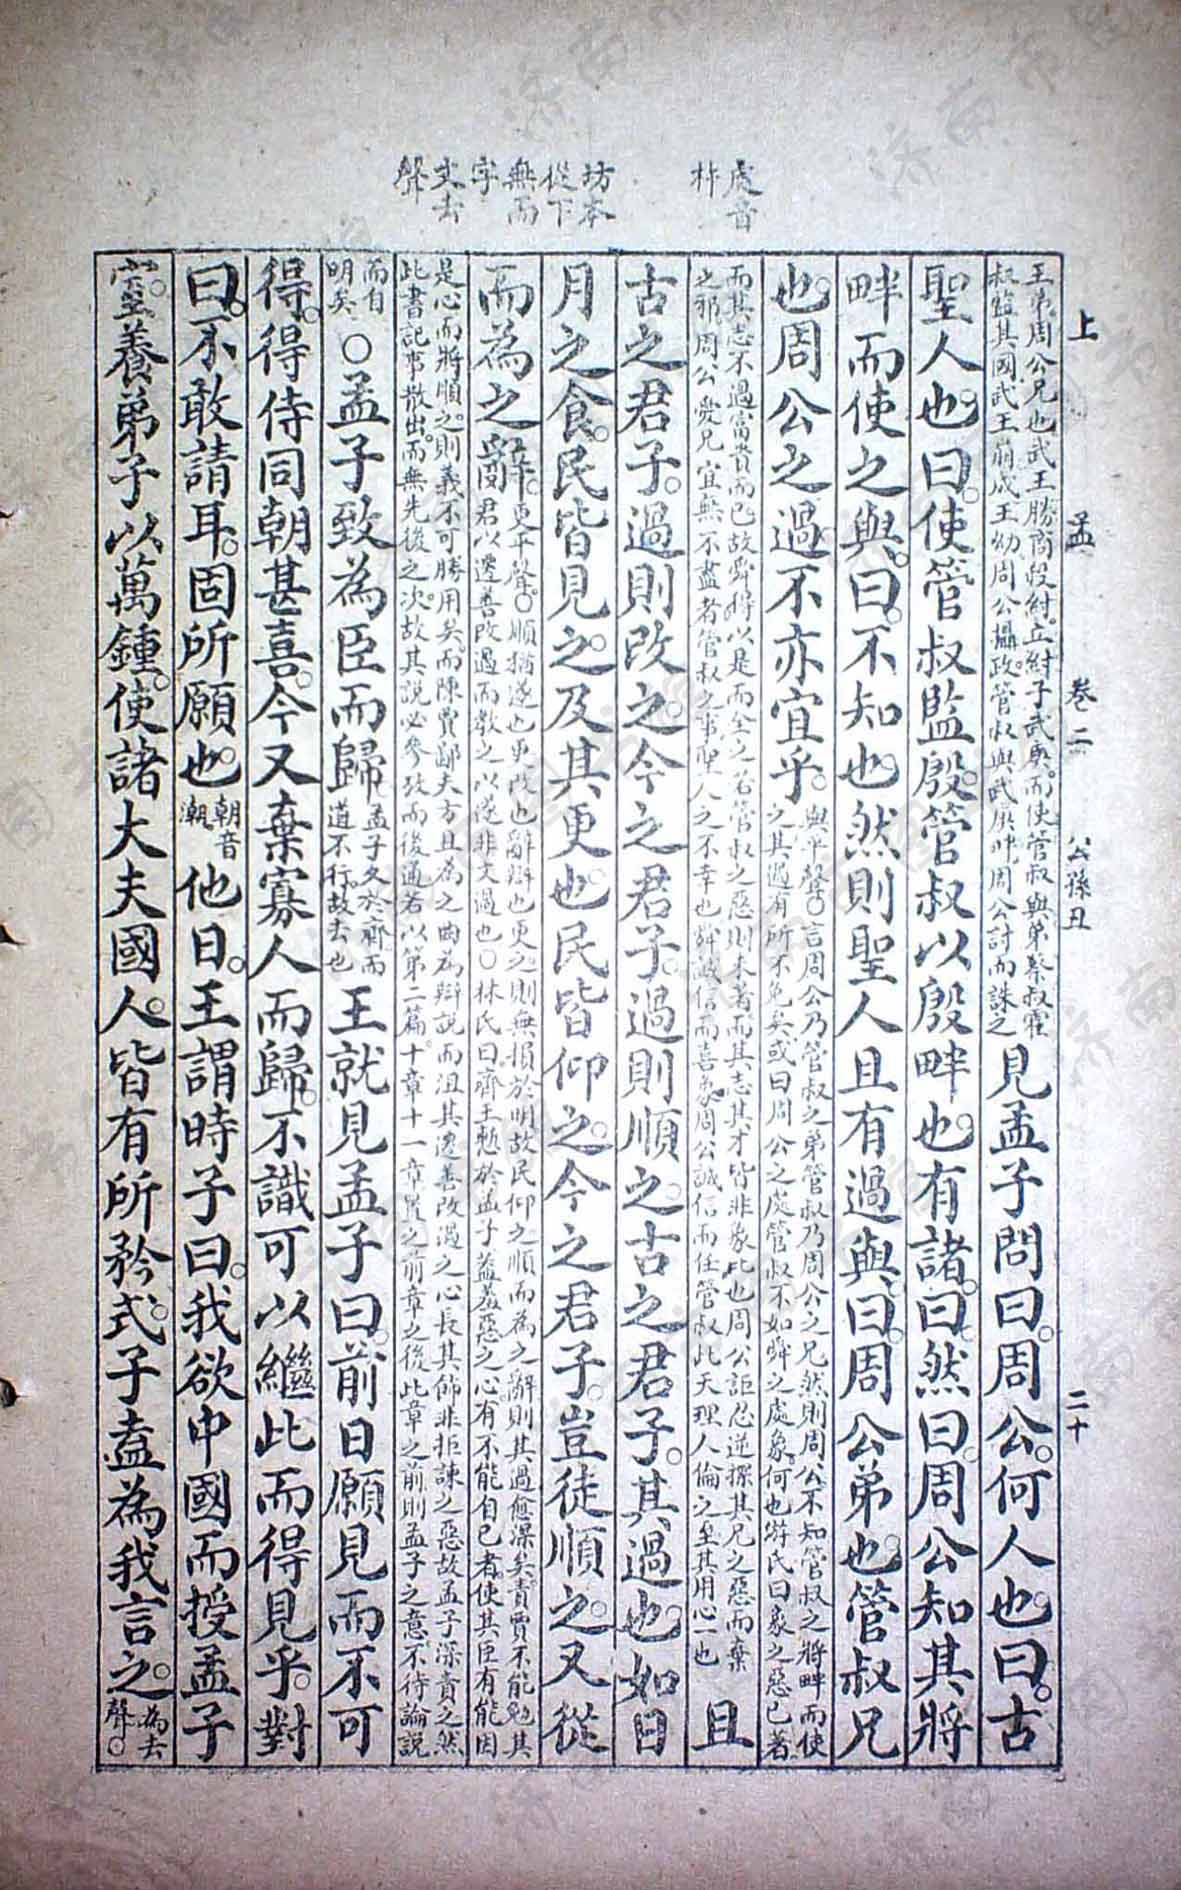 處音
杵
坊本
從下
無而
字
文去
聲
上 孟 卷二 公孫丑 二十
王弟周公兄也武王勝商殺紂立紂子武庚。而使管叔與弟蔡叔霍
叔監其國。武王崩成王幼周公攝政。管叔與武庚畔周公討而誅之
見孟子問曰。周公。何人也。曰。古
聖人也。曰。使管叔監殷。管叔以殷畔也。有諸。曰。然。曰。周公知其將
畔而使之與。曰。不知也。然則聖人且有過與。曰。周公弟也。管叔兄
也。周公之過。不亦宜乎。
與平聲。○言周公乃管叔之弟管叔乃周公之兄然則周公不知管叔之將畔而使
之其過有所不免矣或曰周公之處管叔不如舜之處象何也游氏曰象之惡已著
而其志不過富貴而已故舜得以是而全之若管叔之惡則未著而其志其才皆非象比也周公詎忍逆探其兄之惡而棄
之邪周公愛兄宜無不盡者管叔之事聖人之不幸也舜誠信而喜象周公誠信而任管叔此天理人倫之至其用心一也
且
古之君子。過則改之。今之君子。過則順之。古之君子。其過也。如日
月之食。民皆見之。及其更也。民皆仰之。今之君子。豈徒順之。又從
而為之辭。
更平聲。○順猶遂也更改也辭辯也更之則無損於明故民仰之順而為之辭則其過愈深矣責賈不能勉其
君以遷善改過而教之以遂非文過也○林氏曰齊王慙於孟子蓋羞惡之心有不能自已者使其臣有能因
是心而將順之則義不可勝用矣。而陳賈鄙夫方且為之曲為辯說而沮其遷善改過之心長其飾非拒諫之惡故孟子深責之然
此書記事散出。而無先後之次。故其說必參攷而後通若以第二篇十章十一章置之前章之後此章之前則孟子之意不待論說
而自
明矣
○孟子致為臣而歸
孟子久於齊而
道不行。故去也
王就見孟子曰。前日願見而不可
得。得侍同朝甚喜。今又棄寡人而歸。不識可以繼此而得見乎。對
曰。不敢請耳。固所願也。
朝音
潮
他日。王謂時子曰。我欲中國而授孟子
室。養弟子以萬鍾。使諸大夫國人。皆有所矜式。子盍為我言之。
為去
聲。○